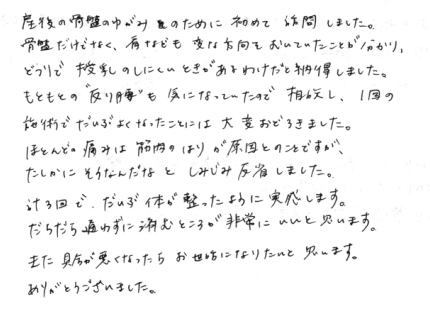 産後の骨盤のゆがみのために 初めて 訪問しました。
骨盤だけでなく、肩なども 変な方向で おいていたことが分かり、
どうりで 授乳のしにくいときがあるわけだと納得しました。
もともとの"反り腰"も 気になっていたので 相談し、1回の
施術で だいぶよくなったことには 大変おどろきました。
ほとんどの痛みは 筋肉のはりが原因とのことですが、
たしかに そうなんだなと しみじみ反省しました。
計3回で、だいぶ体が整ったように 実感します。
だらだら通わずに済むところが非常に いいと思います。
また 具合が悪くなったら お世話になりたいと 思います。
ありがとうございました。